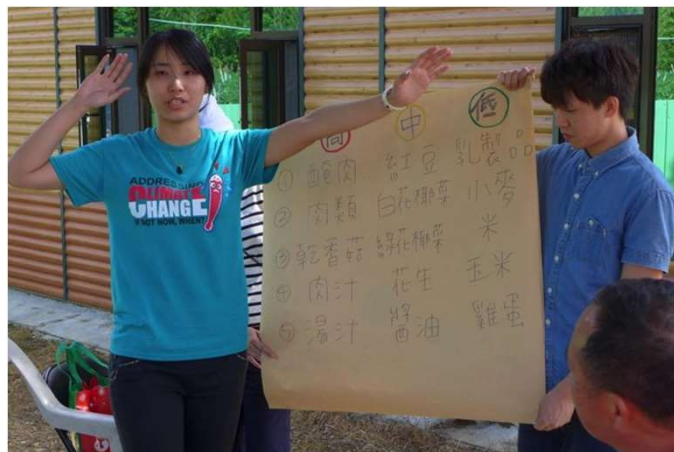 ADDRESSING
CLIMATE
CHANGE
IF NOT NOW, WHEN?
高 中 低
① 醃肉 紅豆 乳製品
② 肉類 白花椰菜 小麥
③ 乾香菇 綠花椰菜 米
④ 肉汁 花生 玉米
⑤ 湯汁 醬油 雞蛋